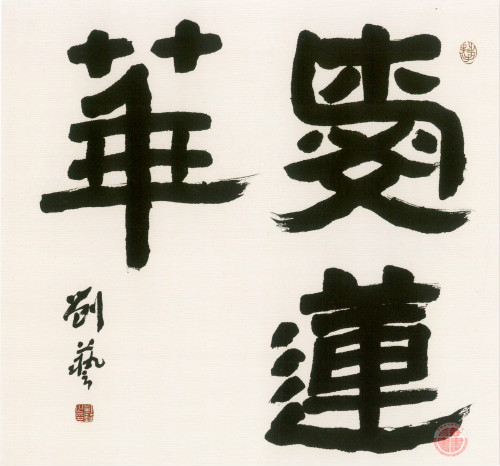 愛蓮
華
劉藝